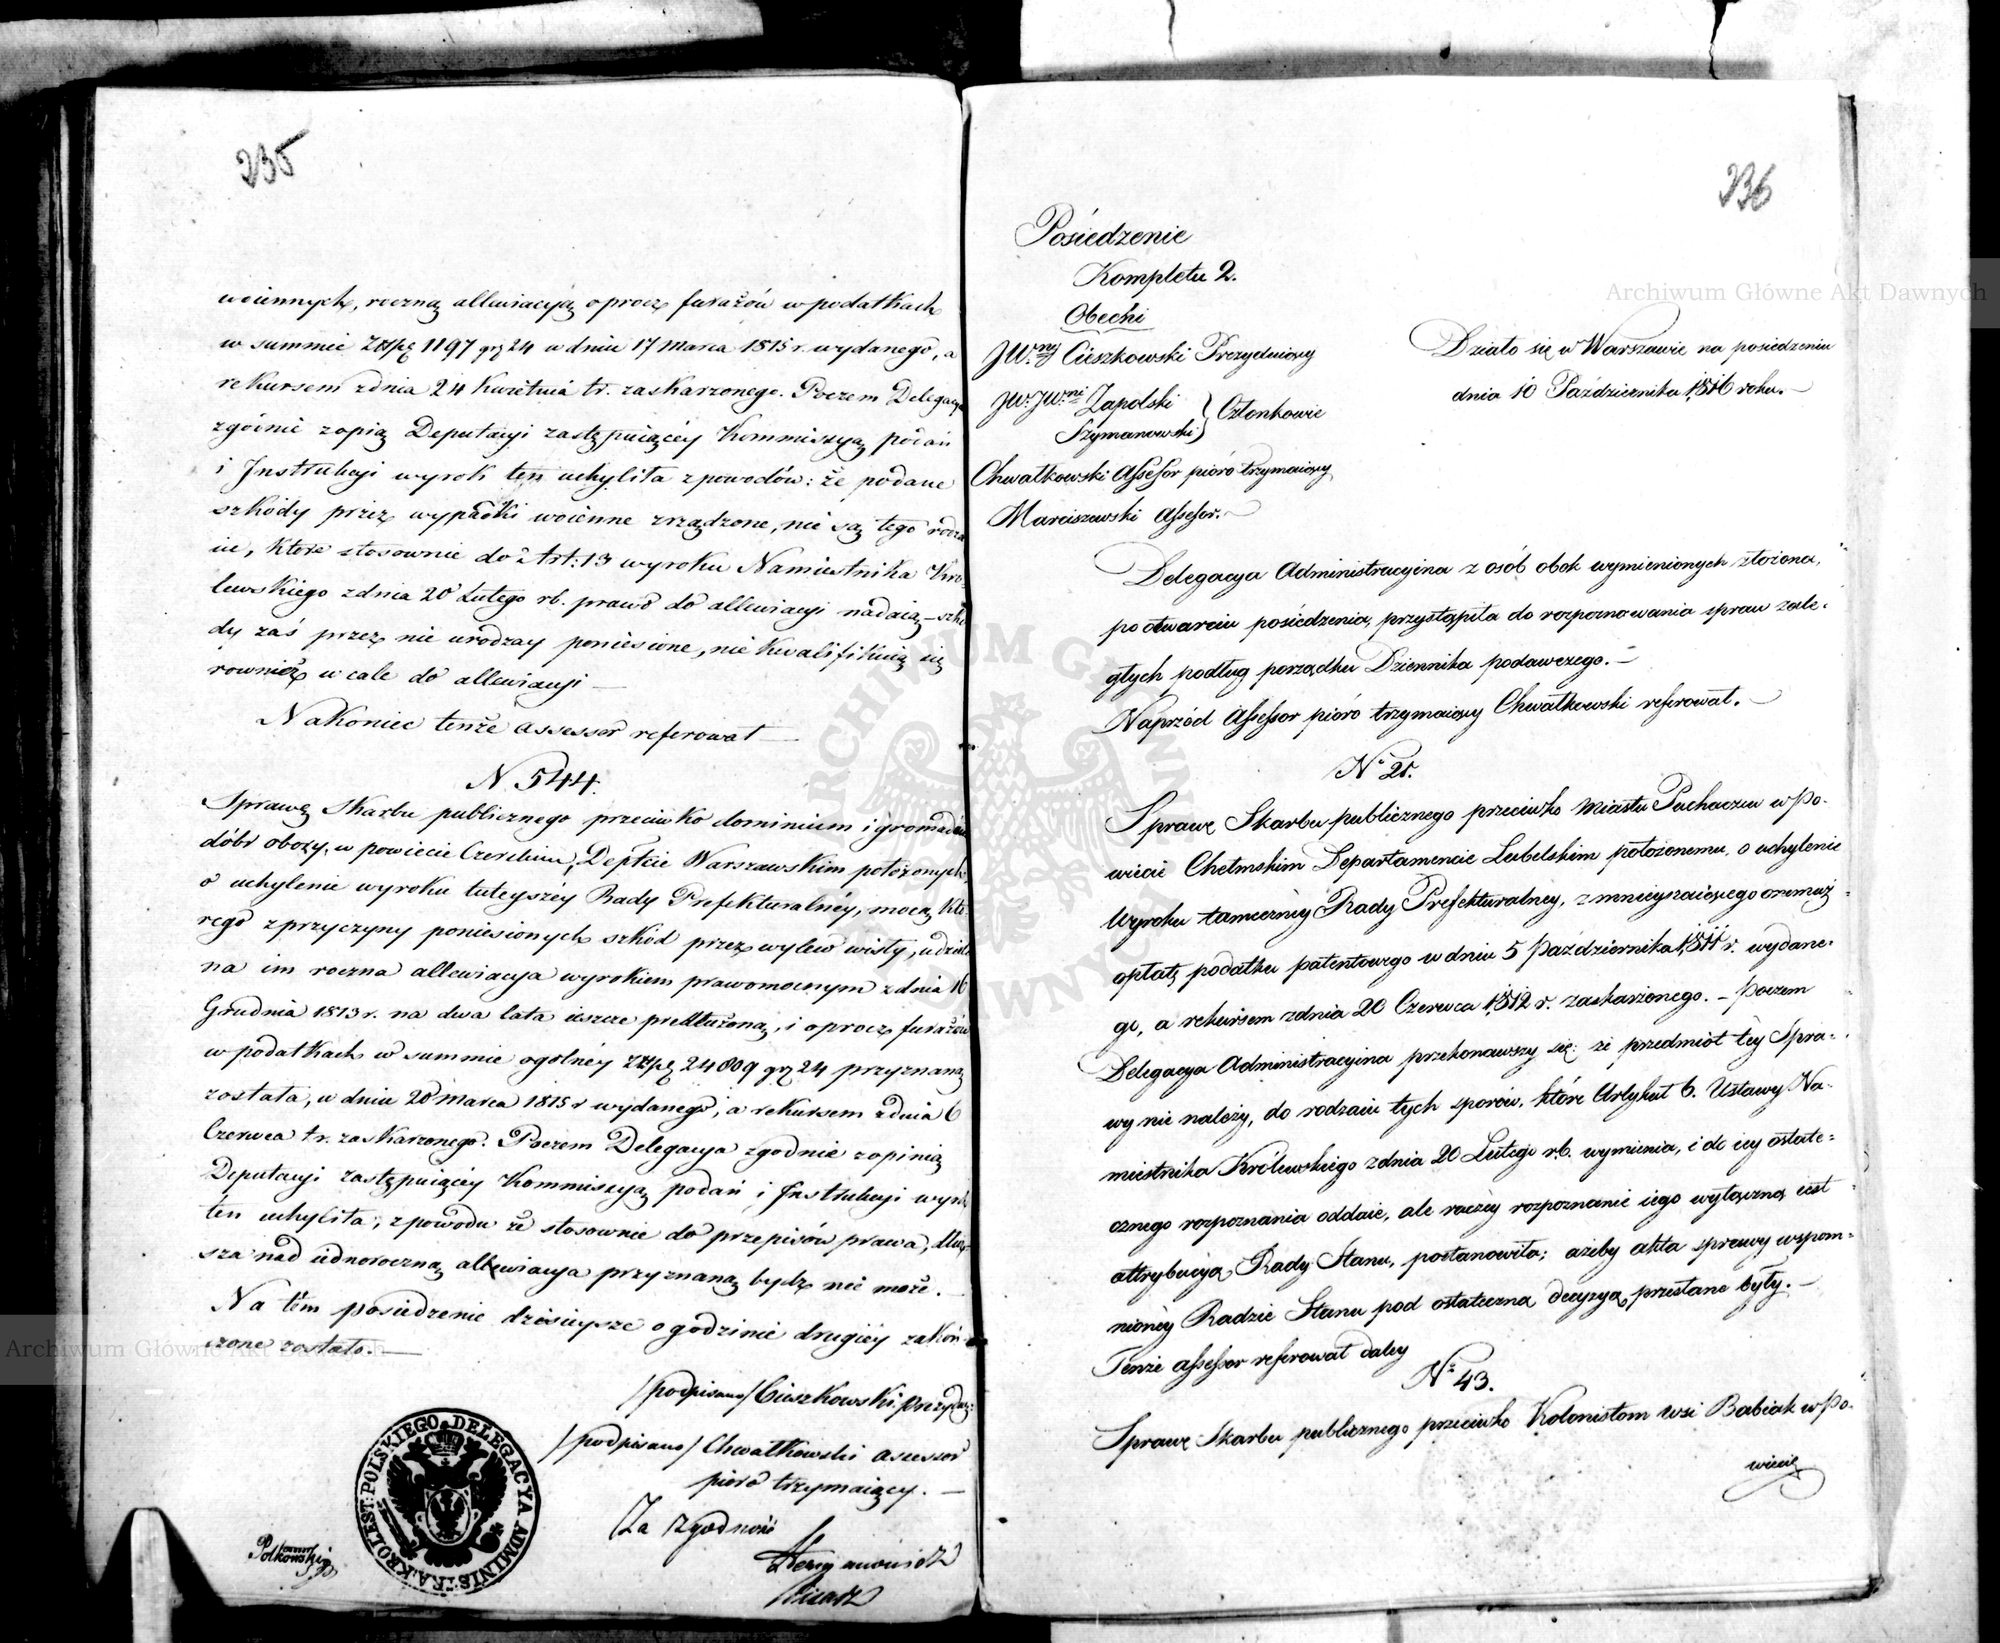 235
woiennych, roczną allewiacyią oprocz furażów w podatkach
w summie Złłpł 1197 gr 24 w dniu 17 Marca 1815 r. wydanego, a
rekursem z dnia 24 Kwietnia tr. zaskarzonego. Poczem Delegacya
zgodnie z opią Deputacyi zastępuiącéy Kommissyią podań
i Instrukcyi wyrok ten uchyliła z powodów: że podane
szkody przez wypadki woienne zrządzone, nie są tego rodza
iu, które stosownie do Art: 13 wyroku Namiestnika Kró
lewskiego z dnia 20 Lutego rb. prawo do allewiacyi nadaią – szko
dy zaś przez nie urodzay poniesione, nie kwalifikuią się
rownież w cale do allewiacyi —
Nakoniec tenże assessor referował —
N. 544.
Sprawę Skarbu publicznego przeciwko dominium i gromadom
dóbr obozy, w powiecie Czerskim, Depłcie Warszawskim położonych,
o uchylenie wyroku tuteyszéy Rady Prefekturalnéy, mocą któ
rego z przyczyny poniesionych szkód przez wylew wisły, udzielo
na im roczna allewiacya wyrokiem prawomocnym z dnia 16
Grudnia 1813 r. na dwa lata ieszcze predłużoną, i oprocz furażów
w podatkach w summie ogolnéy Złłpł 24809 gr 24 przyznaną
została, w dniu 20 Marca 1815 r wydanego, a rekursem z dnia 6
Czerwca t.r. zaskarzonego. Poczem Delegacya zgodnie z opinią
Deputacyi zastępuiącéy Kommissyią podań i Instrukcyi wyrok
ten uchyliła, z powodu że stosownie do przepisów prawa, dłuż
sza nad iednoroczną allewiacya przyznaną bydź nie może. —
Na tém posiedzenie dzisieysze o godzinie drugiéy zakoń
czone zostało. —
/podpisano/ Cieszkowski Prezyd:
/podpisano/ Chwałkowski asessor
pioro trzymaiący. —
Za zgodność
Pisarz
KROLEST: POLSKIEGO DELEGACYA ADMINISTRA:
Polkowski
236
Posiedzenie
Kompletu 2.
Obecni
JW.ny Cieszkowski Prezyduiący
JW. JW.ni Zapolski
Szymanowski } Członkowie
Chwałkowski Assessor pióro trzymaiący
Marciszewski Assessor. —
Działo się w Warszawie na posiedzeniu
dnia 10 Października 1816 roku. —
Delegacya Administracyina z osób obok wymienionych złożona,
po otwarciu posiedzenia, przystąpiła do rozpoznowania spraw zale-
głych podług porządku Dziennika podawczego. —
Naprzód Assessor pióro trzymaiący Chwałkowski referował. —
No 21.
Sprawę Skarbu publicznego przeciwko Miastu Puchaczu w Po-
wiecie Chełmskim Departamencie Lubelskim położonemu, o uchylenie
Wyroku tameczniey Rady Prefekturalney, zmnieyszaiącego oneмuż
opłatę podatku patentowego w dniu 5 Października 1811 r. wydane-
go, a rekursem z dnia 20 Czerwca 1812 r. zaskarżonego. – Poczem
Delegacya Administracyina przekonawszy się: że przedmiot téy Spra-
wy nie należy, do rodzaiu tych sporów, które Artykuł 6. Ustawy Na-
miestnika Królewskiego z dnia 20 Lutego r.b. wymienia, i do iey ostate-
cznego rozpoznania oddaie, ale raczéy rozpoznanie iego wyłączną iest
attrybucyą Rady Stanu, postanowiła; ażeby akta sprawy wspom-
nionéy Radzie Stanu pod ostateczną decyzyą przesłane były. —
Tenże assessor referował daley
No 43.
Sprawę Skarbu publicznego przeciwko Kolonistom wsi Babiak w Po-
wiecie
Archiwum Główne Akt Dawnych
Archiwum Główne Akt Dawnych
ARCHIWUM GŁÓWNE AKT DAWNYCH